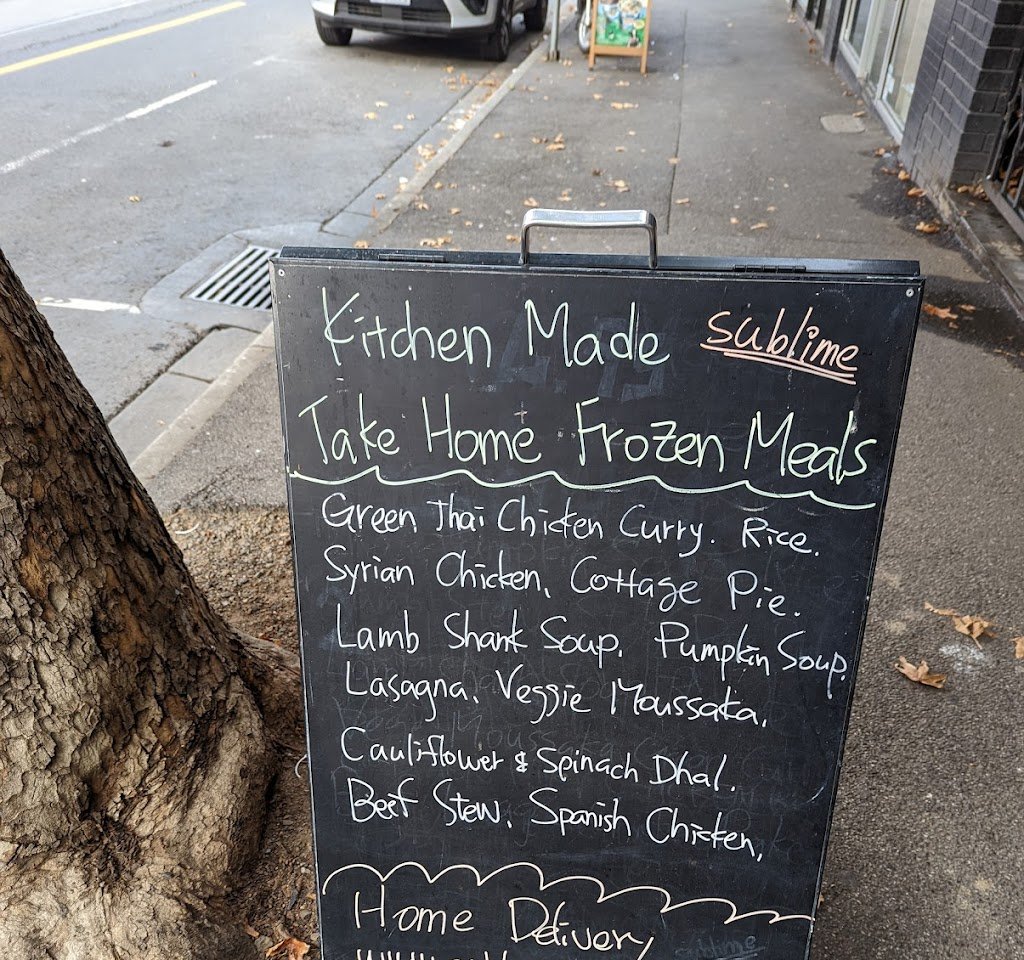 Kitchen Made sublime
Take Home Frozen Meals
Green Thai Chicken Curry. Rice.
Syrian Chicken, Cottage Pie.
Lamb Shank Soup, Pumpkin Soup,
Lasagna, Veggie Moussaka,
Cauliflower & Spinach Dhal.
Beef Stew, Spanish Chicken,
Home Delivery
sublime